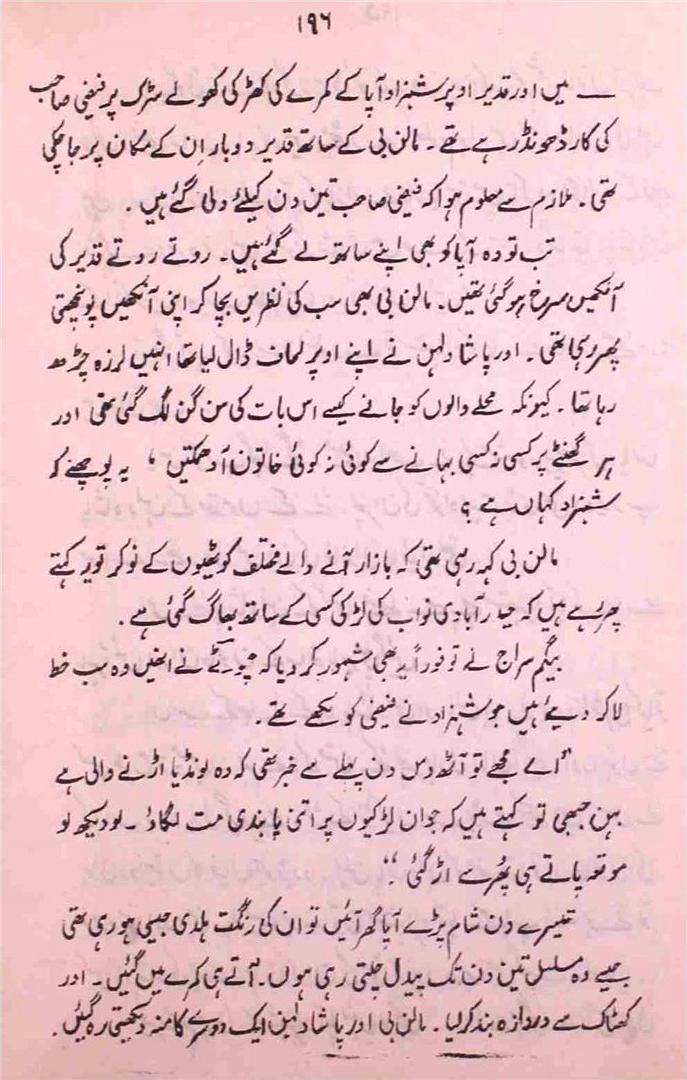 ۱۹۶
— میں اور قدیر اوپر شہزاد آپا کے کمرے کی کھڑکی کھولے سڑک پر فیضی صاحب
کی کار ڈھونڈ رہے تھے۔ مالن بی کے ساتھ قدیر دوبار ان کے مکان پر جاچکی
تھی۔ ملازم سے معلوم ہوا کہ فیضی صاحب تین دن کیلئے دلی گئے ہیں۔
تب تو وہ آپا کو بھی اپنے ساتھ لے گئے ہیں۔ روتے روتے قدیر کی
آنکھیں سرخ ہوگئی تھیں۔ مالن بی بھی سب کی نظریں بچا کر اپنی آنکھیں پونچھتی
پھر رہی تھی۔ اور پاشا دلہن نے اپنے اوپر لحاف ڈال لیا تھا انہیں لرزہ چڑھ
رہا تھا۔ کیونکہ محلے والوں کو جانے کیسے اس بات کی سن گن لگ گئی تھی اور
ہر گھنٹے پر کسی نہ کسی بہانے سے کوئی نہ کوئی خاتون آدھمکتیں، یہ پوچھنے کو
شہزاد کہاں ہے؟
مالن بی کہہ رہی تھی کہ بازار آنے والے مختلف کوٹھیوں کے نوکر تو یہ کہتے
پھر رہے ہیں کہ حیدرآبادی نواب کی لڑکی کسی کے ساتھ بھاگ گئی ہے۔
بیگم سراج نے تو فوراً یہ بھی مشہور کر دیا کہ چھوٹے نے انھیں وہ سب خط
لاکر دیئے ہیں جو شہزاد نے فیضی کو لکھے تھے۔
"اے مجھے تو آٹھ دس دن پہلے سے خبر تھی کہ وہ لونڈیا اڑنے والی ہے
بہن جبھی تو کہتے ہیں کہ جوان لڑکیوں پر اتنی پابندی مت لگاؤ۔ لو دیکھ لو
موقعہ پاتے ہی پھر سے اڑ گئی۔"
تیسرے دن شام پڑے آپا گھر آئیں تو ان کی رنگت ہلدی جیسی ہو رہی تھی
جیسے وہ مسلسل تین دن تک پیدل چلتی رہی ہوں۔ آتے ہی کمرے میں گئیں۔ اور
کھٹاک سے دروازہ بند کر لیا۔ مالن بی اور پاشا دلہن ایک دوسرے کا منہ دیکھتی رہ گئیں۔